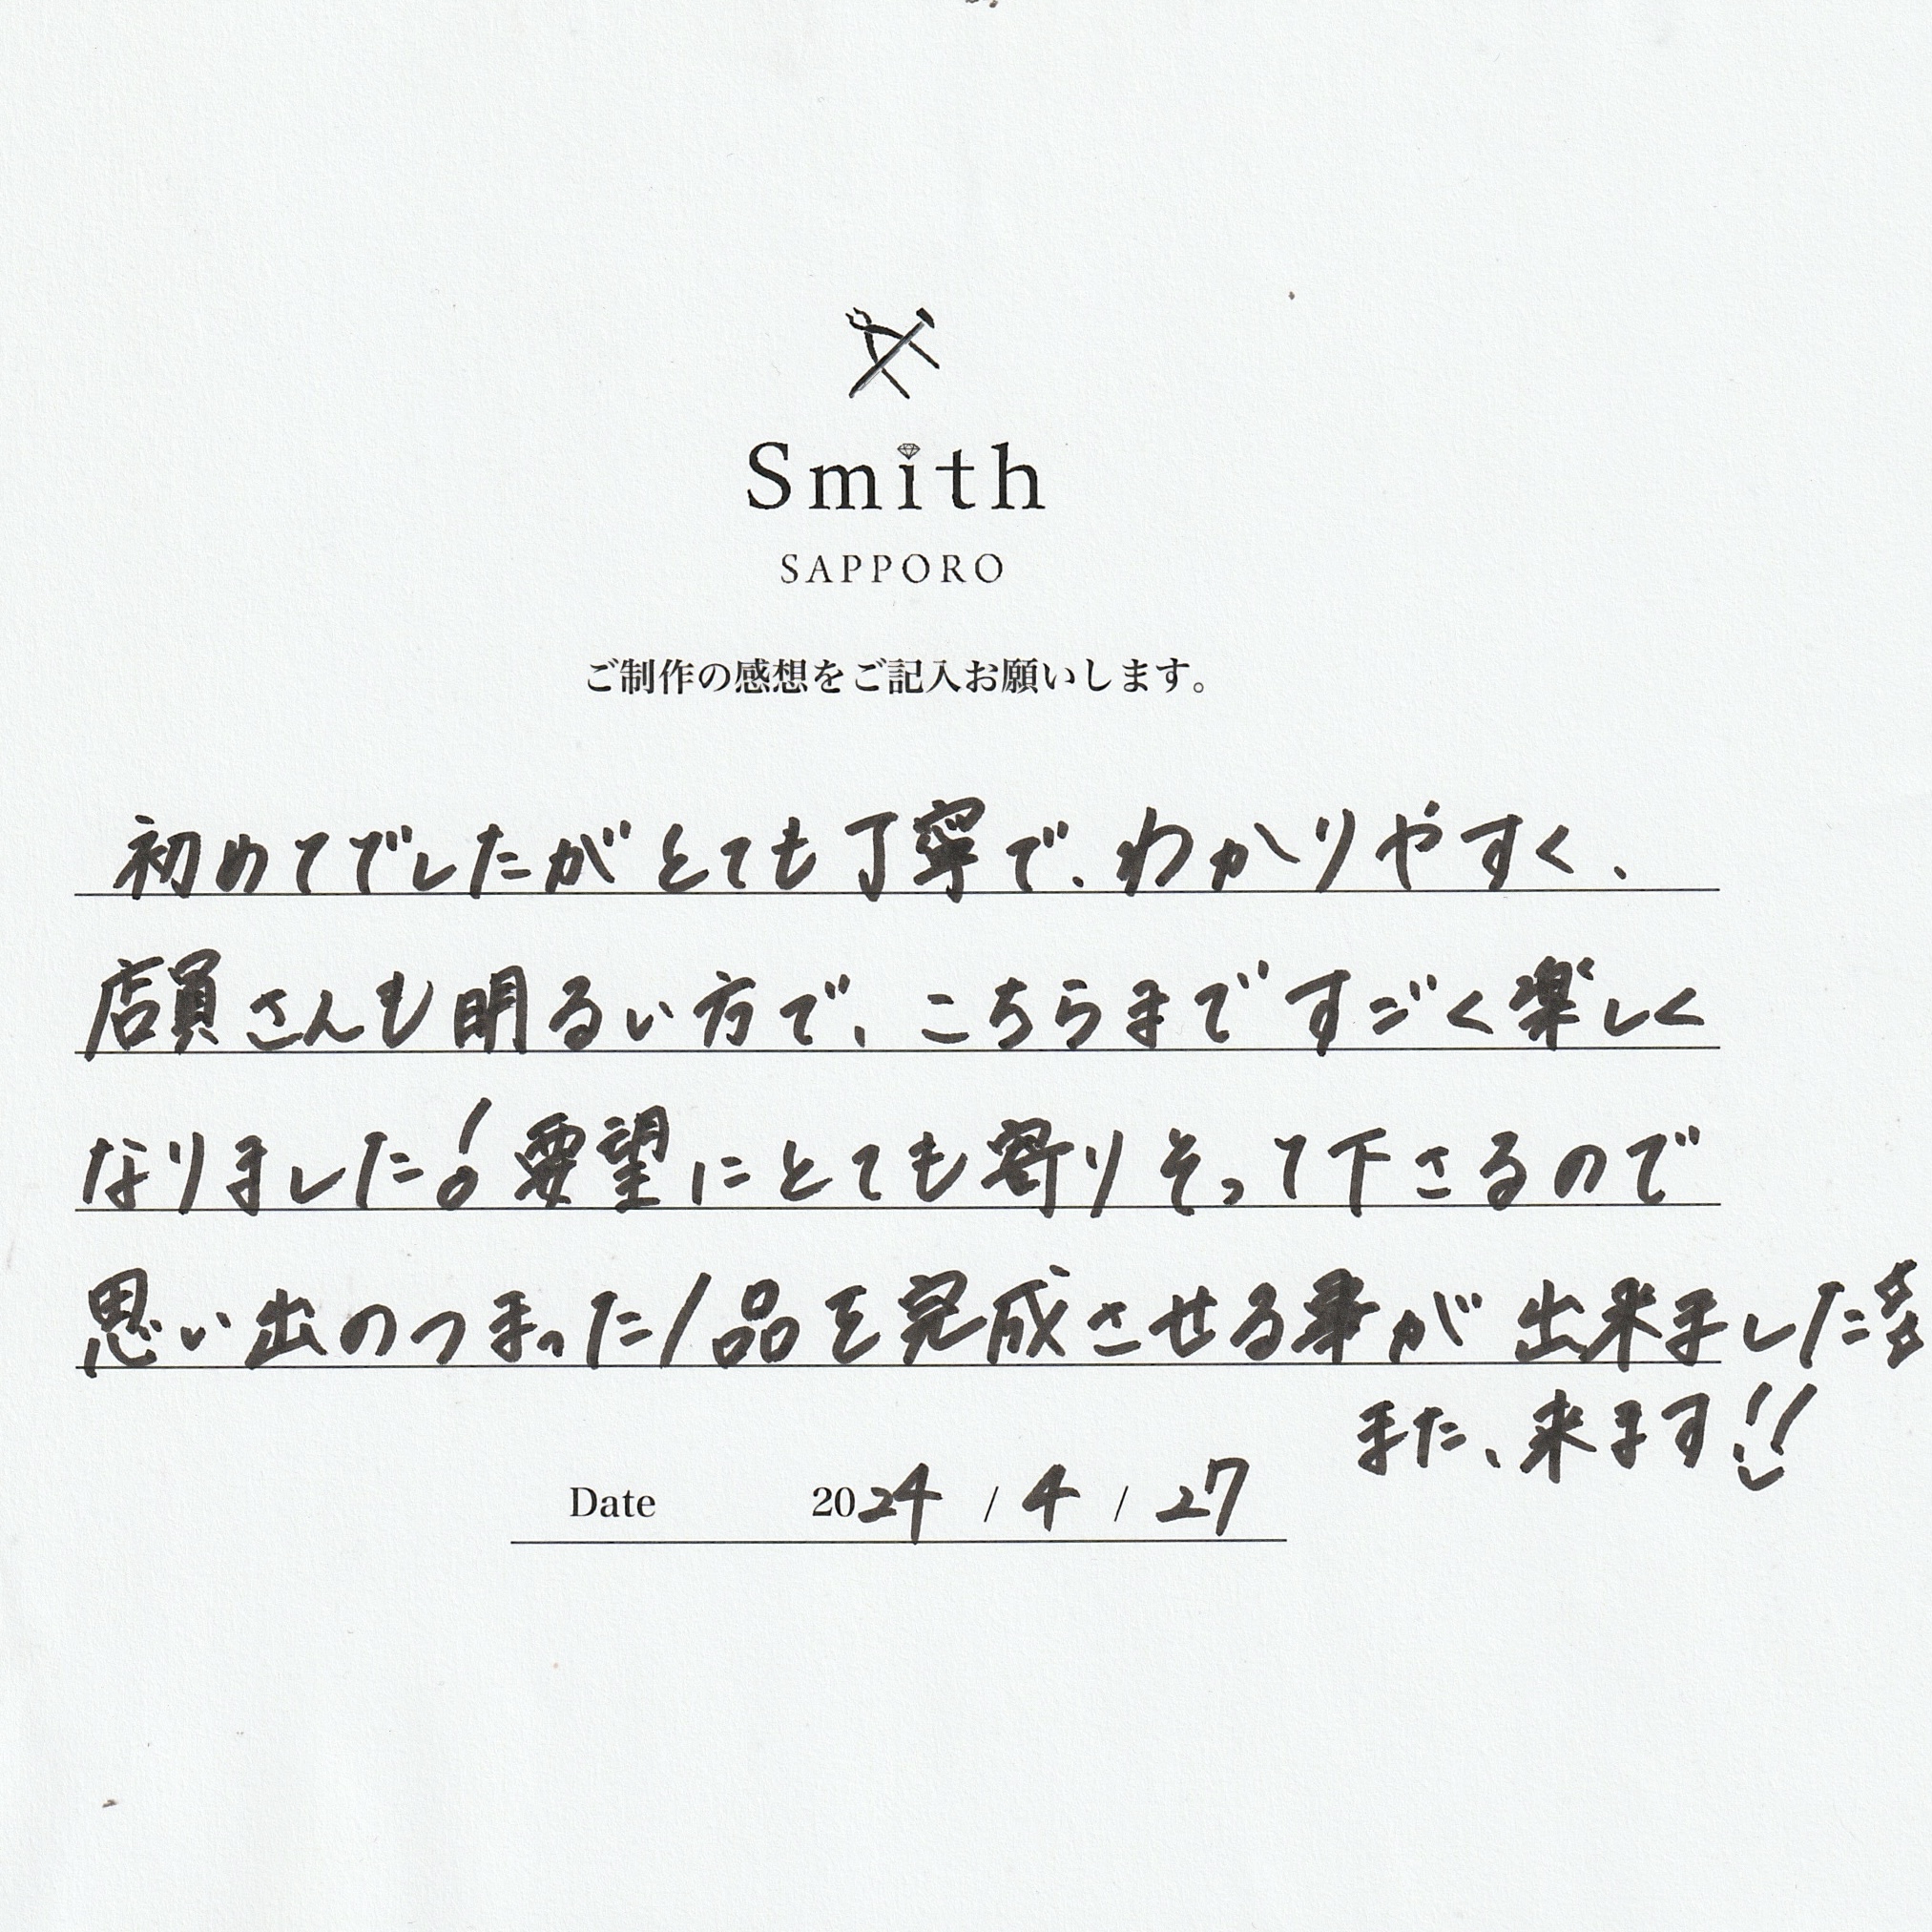 Smith
SAPPORO
ご制作の感想をご記入お願いします。
初めてでしたがとても丁寧で、わかりやすく、
店員さんも明るい方で、こちらまですごく楽しく
なりました!要望にとても寄りそって下さるので
思い出のつまった1品を完成させる事が出来ました
また、来ます!!
Date 2024 / 4 / 27